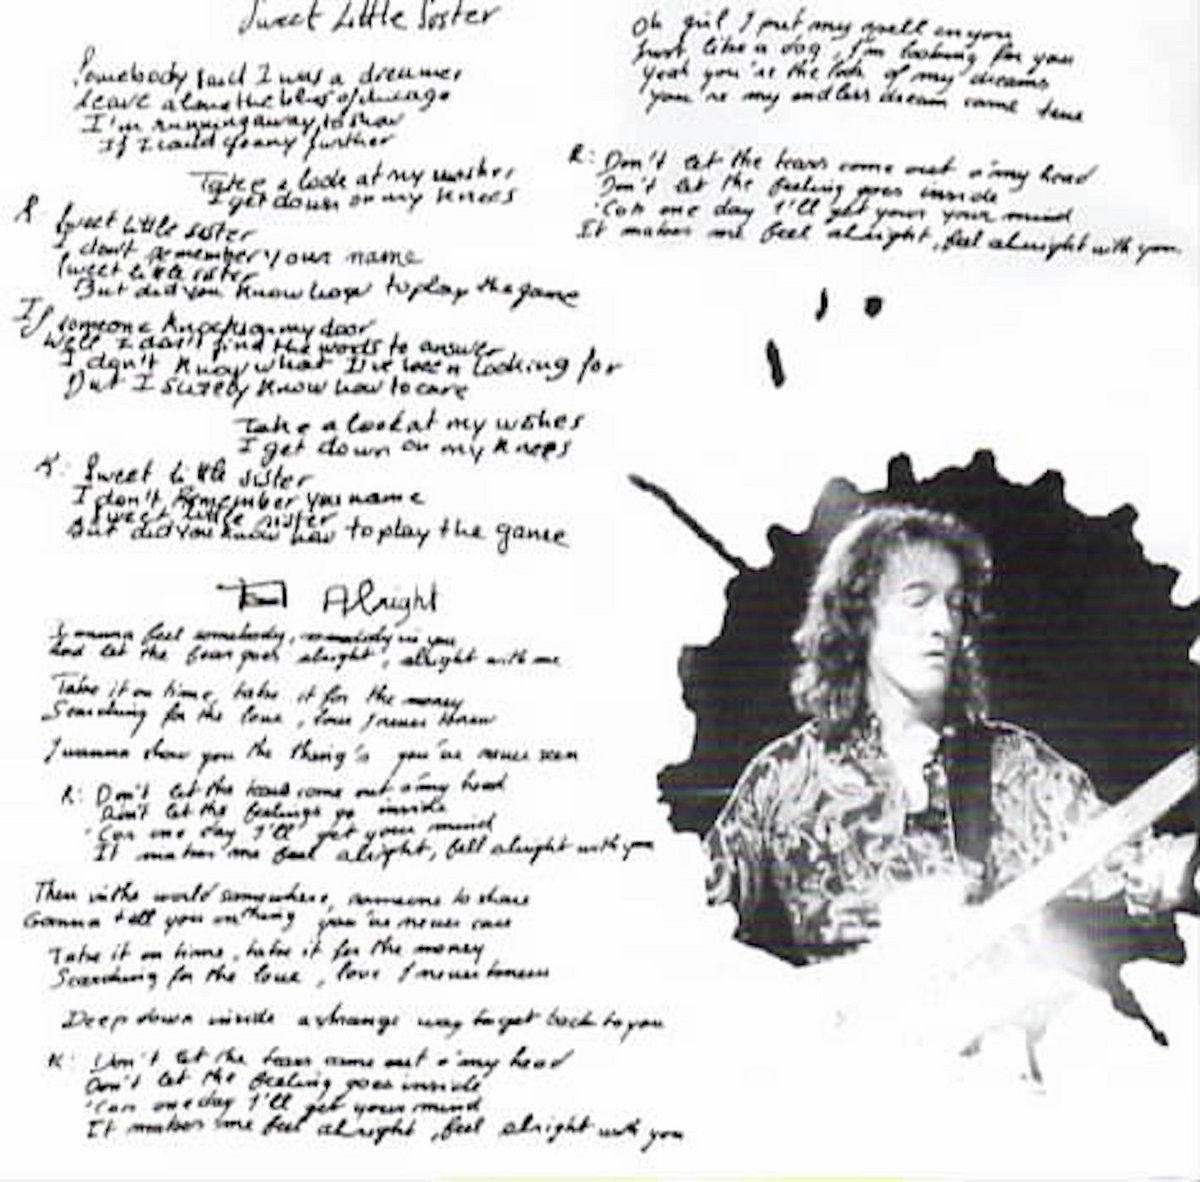 Sweet Little Sister
Somebody said I was a dreamer
Leave alone the blues of chicago
I'm running away to show
If I could go any further
Take a look at my wishes
I get down on my knees
R: Sweet little sister
I don't remember your name
Sweet little sister
But did you know how to play the game
If someone knocks on my door
Well I don't find the words to answer
I don't know what I've been looking for
But I surely know how to care
Take a look at my wishes
I get down on my knees
R: Sweet little sister
I don't remember your name
Sweet little sister
But did you know how to play the game
Alright
I wanna feel somebody, somebody in you
And let the fear goes alright, alright with me
Take it on time, take it for the money
Searching for the love, love I never knew
I wanna show you the thing's you've never seen
R: Don't let the tears come out o'my head
Don't let the feelings go inside
'Cos one day I'll get your mind
It makes me feel alright, fell alright with you
Then in the world somewhere, someone to share
Gonna tell you you've never
Take it on time, take it for the money
Searching for the love, love I never knew
Deep down inside a strange way to get back to you
R: Don't let the tears come out o'my head
Don't let the feeling goes inside
'Cos one day I'll get your mind
It makes me feel alright, feel alright with you
Oh girl I put my spell on you
Just like a dog, I'm looking for you
Yeah you're the look of my dreams
You're my endless dream came true
R: Don't let the tears come out o'my head
Don't let the feeling goes inside
'Cos one day I'll get your your mind
It makes me feel alright, feel alright with you